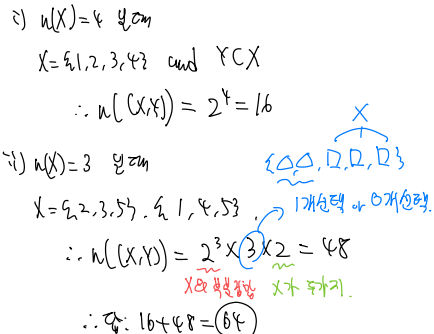 i) n(X)=4 일 때
X={1,2,3,4} and Y⊂X
∴ n((X,Y)) = 2⁴ = 16
X
{△,△,□,□,□}
ii) n(X)=3 일 때
X={2,3,5}, {1,4,5}.
1개선택 or 0개선택.
∴ n((X,Y)) = 2³×3×2 = 48
X의 부분집합
X가 두가지.
∴ 답: 16+48=64